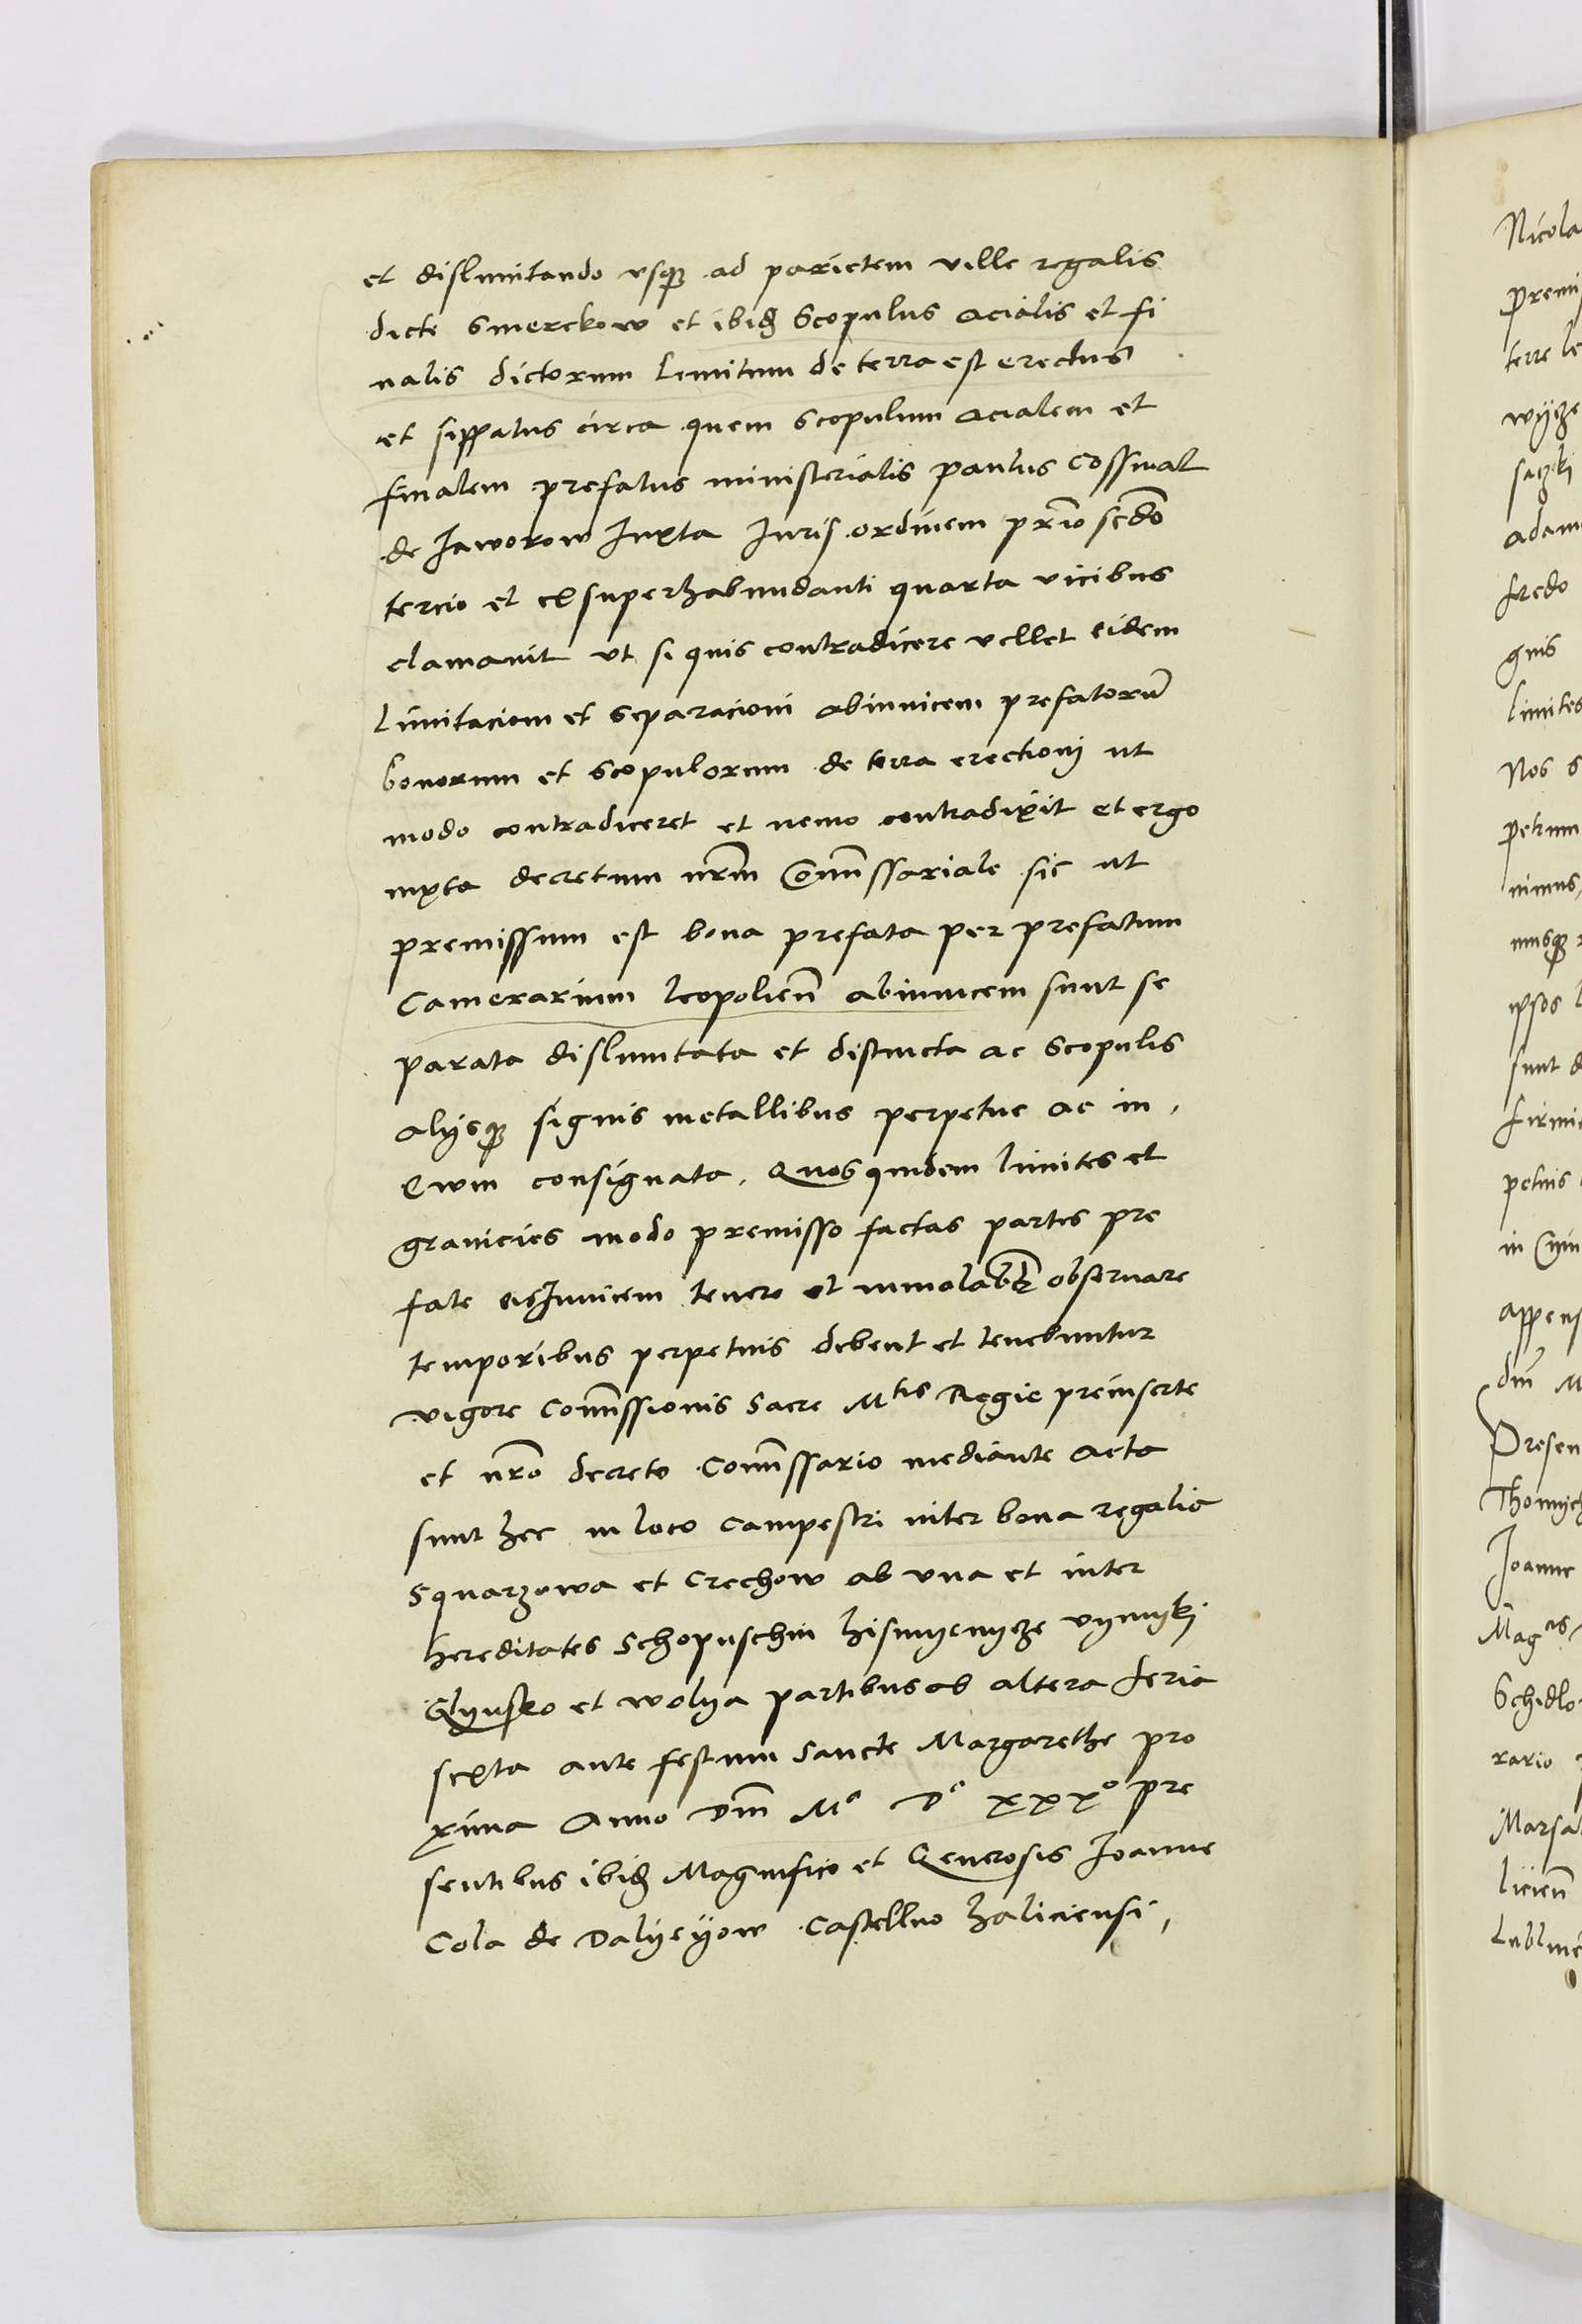 et dislimitando vsq(ue) ad parietem ville regalis
dicte Smerekow et ibid(em) Scopulus acialis et fi
nalis dictorum limitum de terra est erectus
et sippatus circa quem Scopulum Acialem et
finalem prefatus ministerialis Paulus Cossmal
de Jaworow Juxta Juris ordinem prīo scdo
tercio et ex superhabundanti quarta vicibus
clamauit vt si quis contradicere vellet eidem
Limitacioni et Separacioni abinuicem prefatorū
bonorum et Scopulorum de terra erectioni ut
modo contradiceret et nemo contradixit et ergo
iuxta decretum nrm Comissariale sic ut
premissum est bona prefata per prefatum
Camerarium leopolien abinuicem sunt se
parata dislimitata et distincta ac Scopulis
alysq(ue) signis metallibus perpetue ac in
Ewm consignata. Quos quidem limites et
granicies modo premisso factas partes pre
fate adJnuicem tenere et inuiolabr obseruare
temporibus perpetuis debent et tenebuntur
vigore Comissionis Sacre Mtis Regie preinserte
et nro decreto Comissario mediante Acta
sunt hec in loco Campestri inter bona regalia
Squarzowa et Crechow ab vna et inter
hereditates Schopuschin
Glynsko et wolya partibus ab altera feria
sexta ante festum Sancte Margarethe pro
xima Anno Dm Mo Do xxxo pre
sentibus ibid(em) Magnifico et Generosis Joanne
Cola de Dalyeyow Castellno haliciensi,
Nicola
premi
terre le
adam
fredo
limites
Nos
petrum
ipsos
sunt
firmi
petuis
appens
Presen
Joanne
Schidlo
rario
Marsal